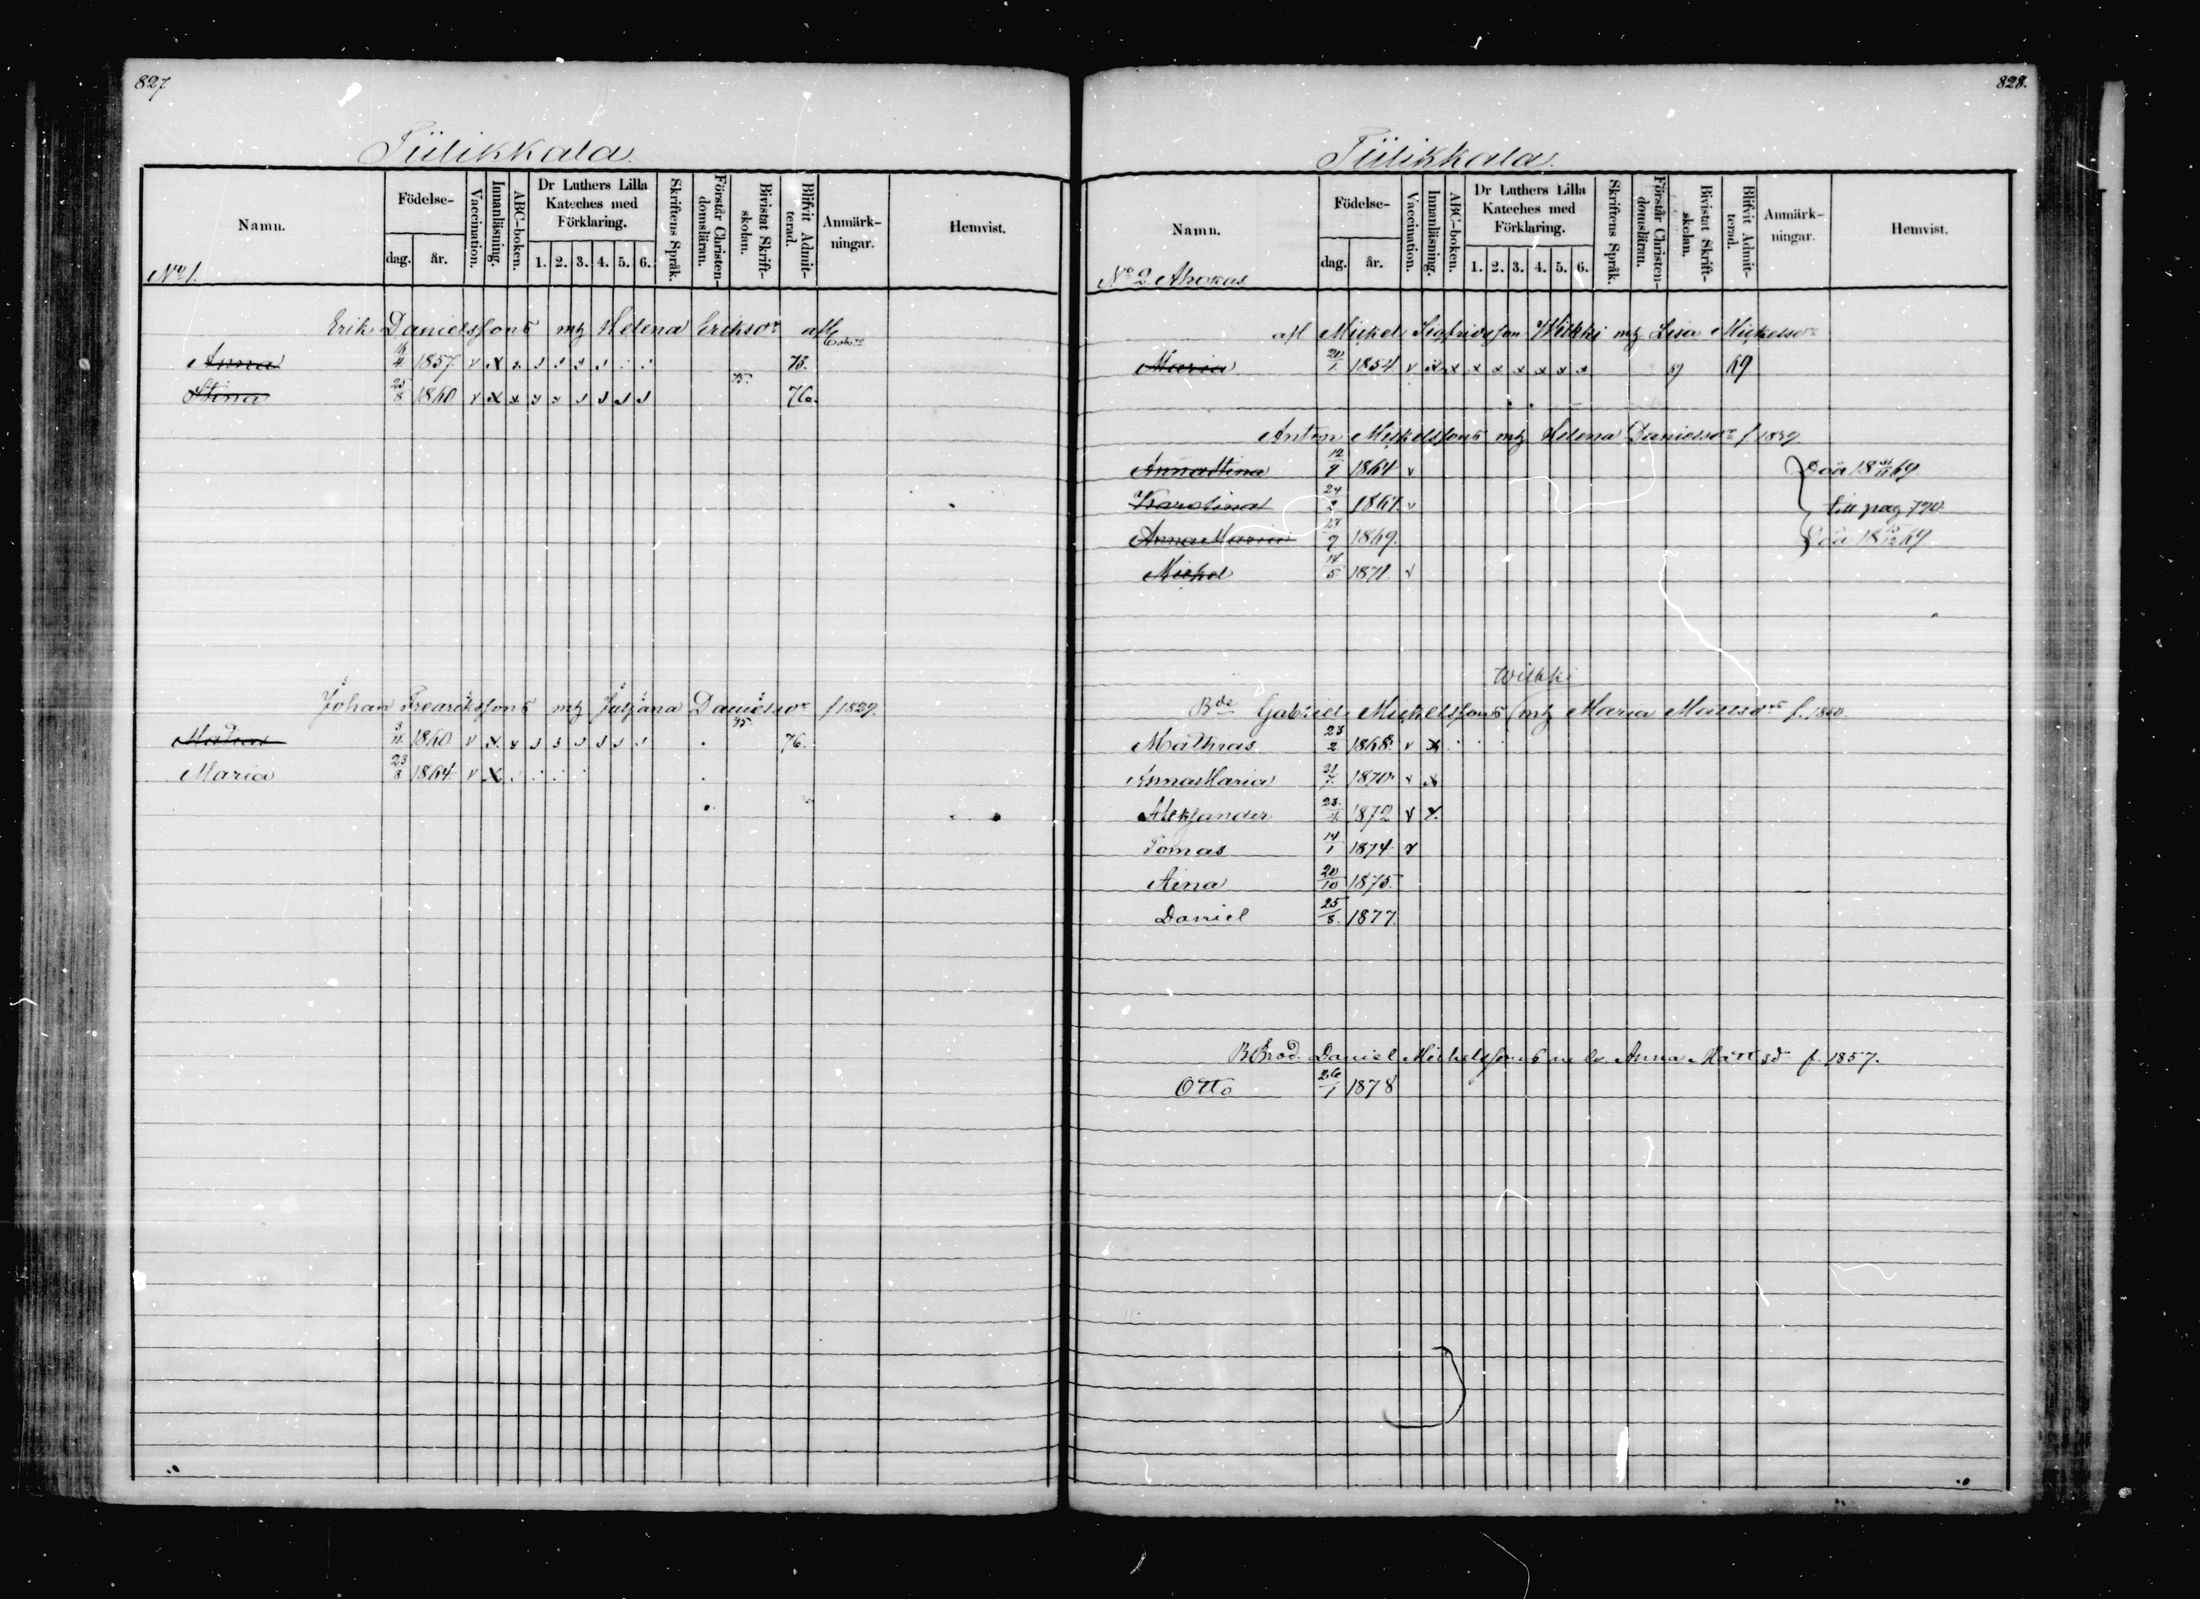 827
Tiilikkala.
Namn.
Födelse-
dag.
år.
Vaccination.
Innanläsning.
ABC-boken.
Dr Luthers Lilla Kateches med Förklaring.
1. 2. 3. 4. 5. 6.
Skriftens Språk.
Förstår Christen-domsläran.
Bivistat Skrift-skolan.
Blifvit Admit-terad.
Anmärk-ningar.
Hemvist.
No 1.
Erik Danielsson mh Helena Eriksdr
Anna 1857 v x 73.
75.
Stina 25/8 1860 v x 76.
Johan Fredriksson mh Juljana Danielsdr f 1829.
75.
3/11 1860 v x 76.
Maria 23/8 1864 v x
828.
Tiilikkala.
Namn.
Födelse-
dag.
år.
Vaccination.
Innanläsning.
ABC-boken.
Dr Luthers Lilla Kateches med Förklaring.
1. 2. 3. 4. 5. 6.
Skriftens Språk.
Förstår Christen-domsläran.
Bivistat Skrift-skolan.
Blifvit Admit-terad.
Anmärk-ningar.
Hemvist.
No 2 Ahokas
afl Mickel Sigfridsson Wilkki mh Lisa Mickelsdr
Maria 20/1 1854 v x x x x x x x x 69 69
Anton Mickelssons mh Helena Danielsdr f 1839
Anna Stina 12/9 1864 v Död 18 69
Karolina 24/2 1867 v till pag 790.
Anna Maria 9 1869. Död 18 69
Mickel 14/5 1871. v
Wilkki
Bde Gabriel Mickelssons mh Maria Mattsdr f. 1850.
Mathias 23/2 1868. v x
Anna Maria 31/7 1870 v x
Aleksander 23 1872 v x
Tomas 14/1 1874 v
Aina 20/10 1875.
Daniel 25/8. 1877.
B Brod. Daniel Michelssons Anna Matt sdr f. 1857.
Otto 26/1 1878